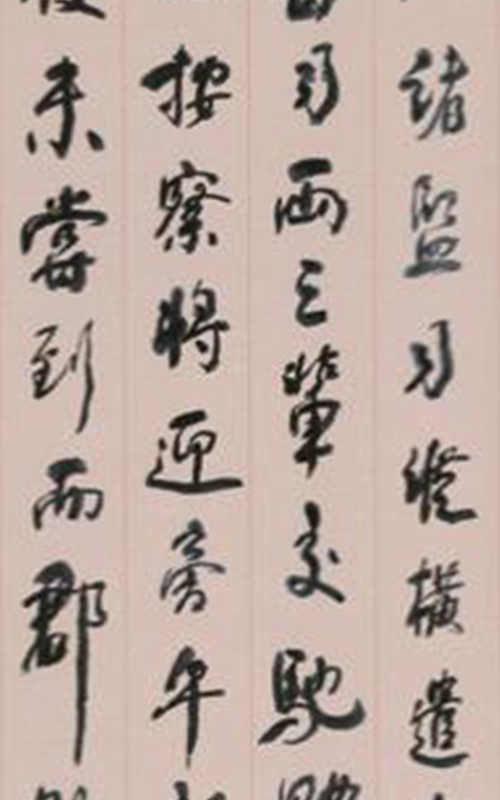 緒監司縱橫遣
司兩三輩交馳
按察將迎旁午
未嘗到而郡